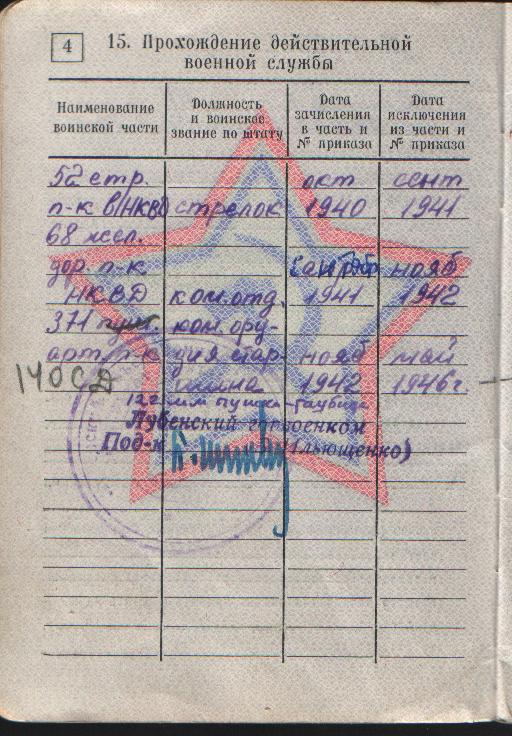 4
15. Прохождение действительной
военной службы
Наименование воинской части
Должность и воинское звание по штату
Дата зачисления в часть и № приказа
Дата исключения из части и № приказа
52 стр. окт сент
п-к в/НКВД стрелок 1940 1941
68 жел.
дор. п-к сентябр нояб
НКВД ком.отд. 1941 1942
371 ком. ору-
арт. п-к дия стар- нояб май
140СД шина 1942 1946г.
122 мм пушка-гаубица
Лубенский горвоенком
Под-к (Ильющенко)